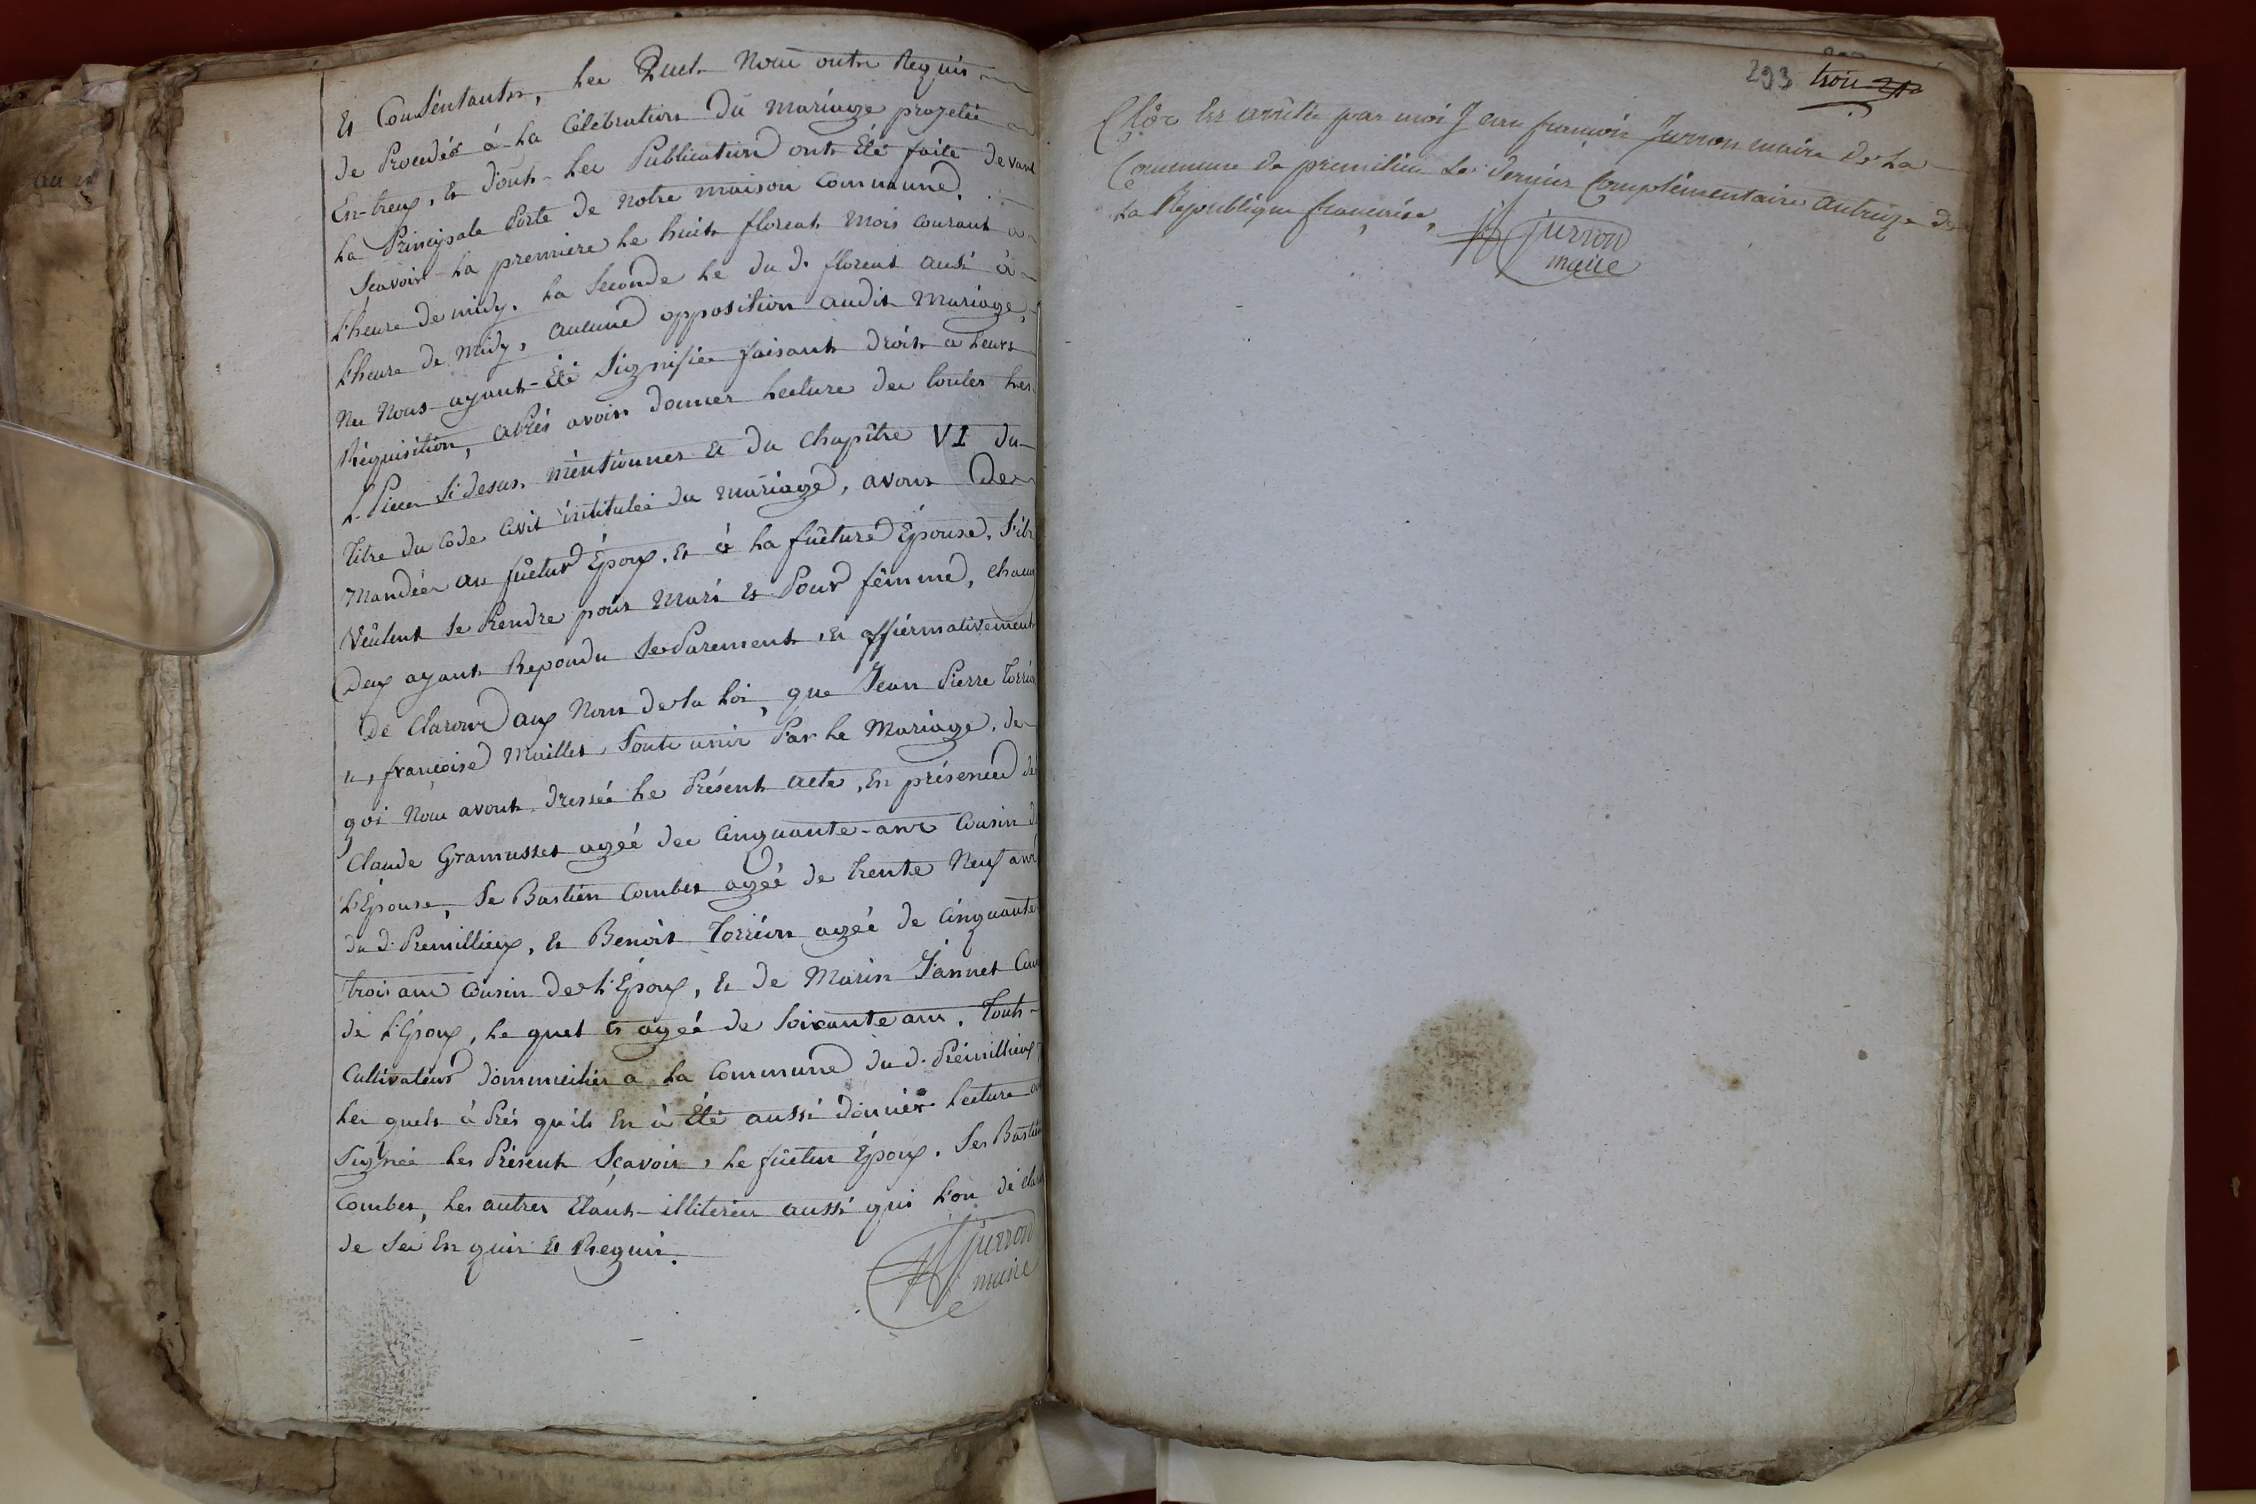 Et Consentante, les Quels Nous ontes Requis
de Proceder á la Célébration du mariage projetté
En-treux, Et Dont les Publication ont Été faite devant
la Principale Porte de notre maison Commune.
Sçavoir la premiere le huit floreal mois courant a
l'heure de midy, la seconde le du d. floreal ausi á
l'heure de midy, aucune opposition audit Mariage,
Ne Nous ayant Été Signifiée faisant droit a leurs
Réquisition, Aprés avoir donner lecture de toutes les
Piece Si desus mentionner Et du Chapître VI du
Titre du Code Civil intitulée du mariage, avons De
Mandée au fûetur Époux, Et á la fûeture Épouse, S'ils
Veulent se Prendre pour Mari Et Pour fêmme, chacun
Deux ayant Repondu Separement, Et affiermativement
de Clarons aux Nom de la loi, que Jean Pierre Torrion
Et françoise Maillet Sont unir Par le Mariage, de
qoi Nous avont dressée le Présent acte, En présence de
Claude Gramusset agée de Cinquante-ans Cousin de
l'Épouse, Se Bastien Combet agée de trente Neuf ans
du d. Premillieux, Et Benoit Torrion agée de Cinquante
trois ans Cousin de l'Époux, Et de Marin Jannet
de l'Époux, le quel Et agée de Soixante ans, Touts
Cultivateur Dommicilier a la Commune du d. Prémillieux,
les quels á Prés qu'ils En á Été aussi donnér lecture
Signée les Présent Sçavoir, le fûetur Époux, Se Bastien
Combet, les autres Etant illiterée aussi qui l'on déclaré
de Ses En quis Et Requis.
Jurron
maire
293 trois
Clôs Et arrêtée par moi Jean françois Jurron maire de la
Commune de premilieu le dernier Complémentaire an treize de
la République française,
Jurron
maire